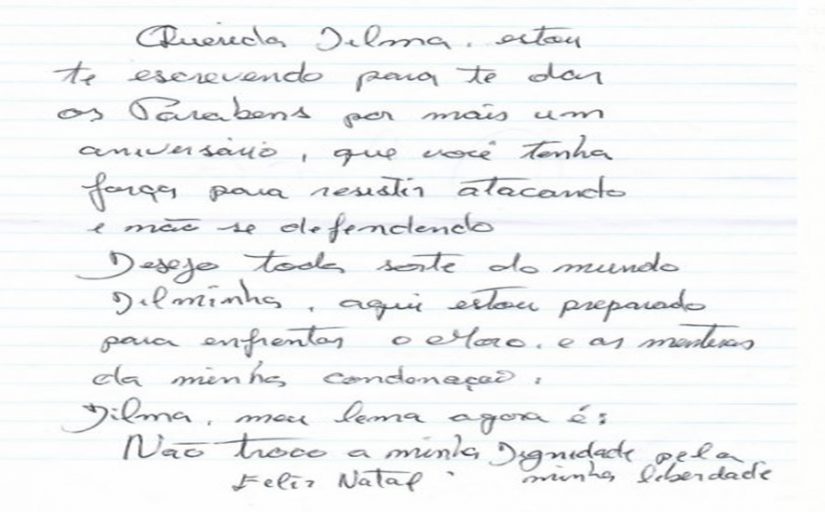 Querida Dilma, estou
te escrevendo para te dar
os Parabens por mais um
aniversário, que você tenha
força para resistir atacando
e não se defendendo
Desejo toda sorte do mundo
Dilminha, aqui estou preparado
para enfrentar o Moro, e as mentiras
da minha condenação.
Dilma, meu lema agora é:
Não troco a minha Dignidade pela
minha liberdade
Feliz Natal